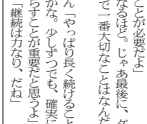 ことが必要だよ」
なるほど。じゃあ最後に、ダ
で一番大切なことはなんだ
ん「やっぱり長く続けること
かな。少しずつでも、確実に
らすことが重要だと思うよ」
「継続は力なり、だね」